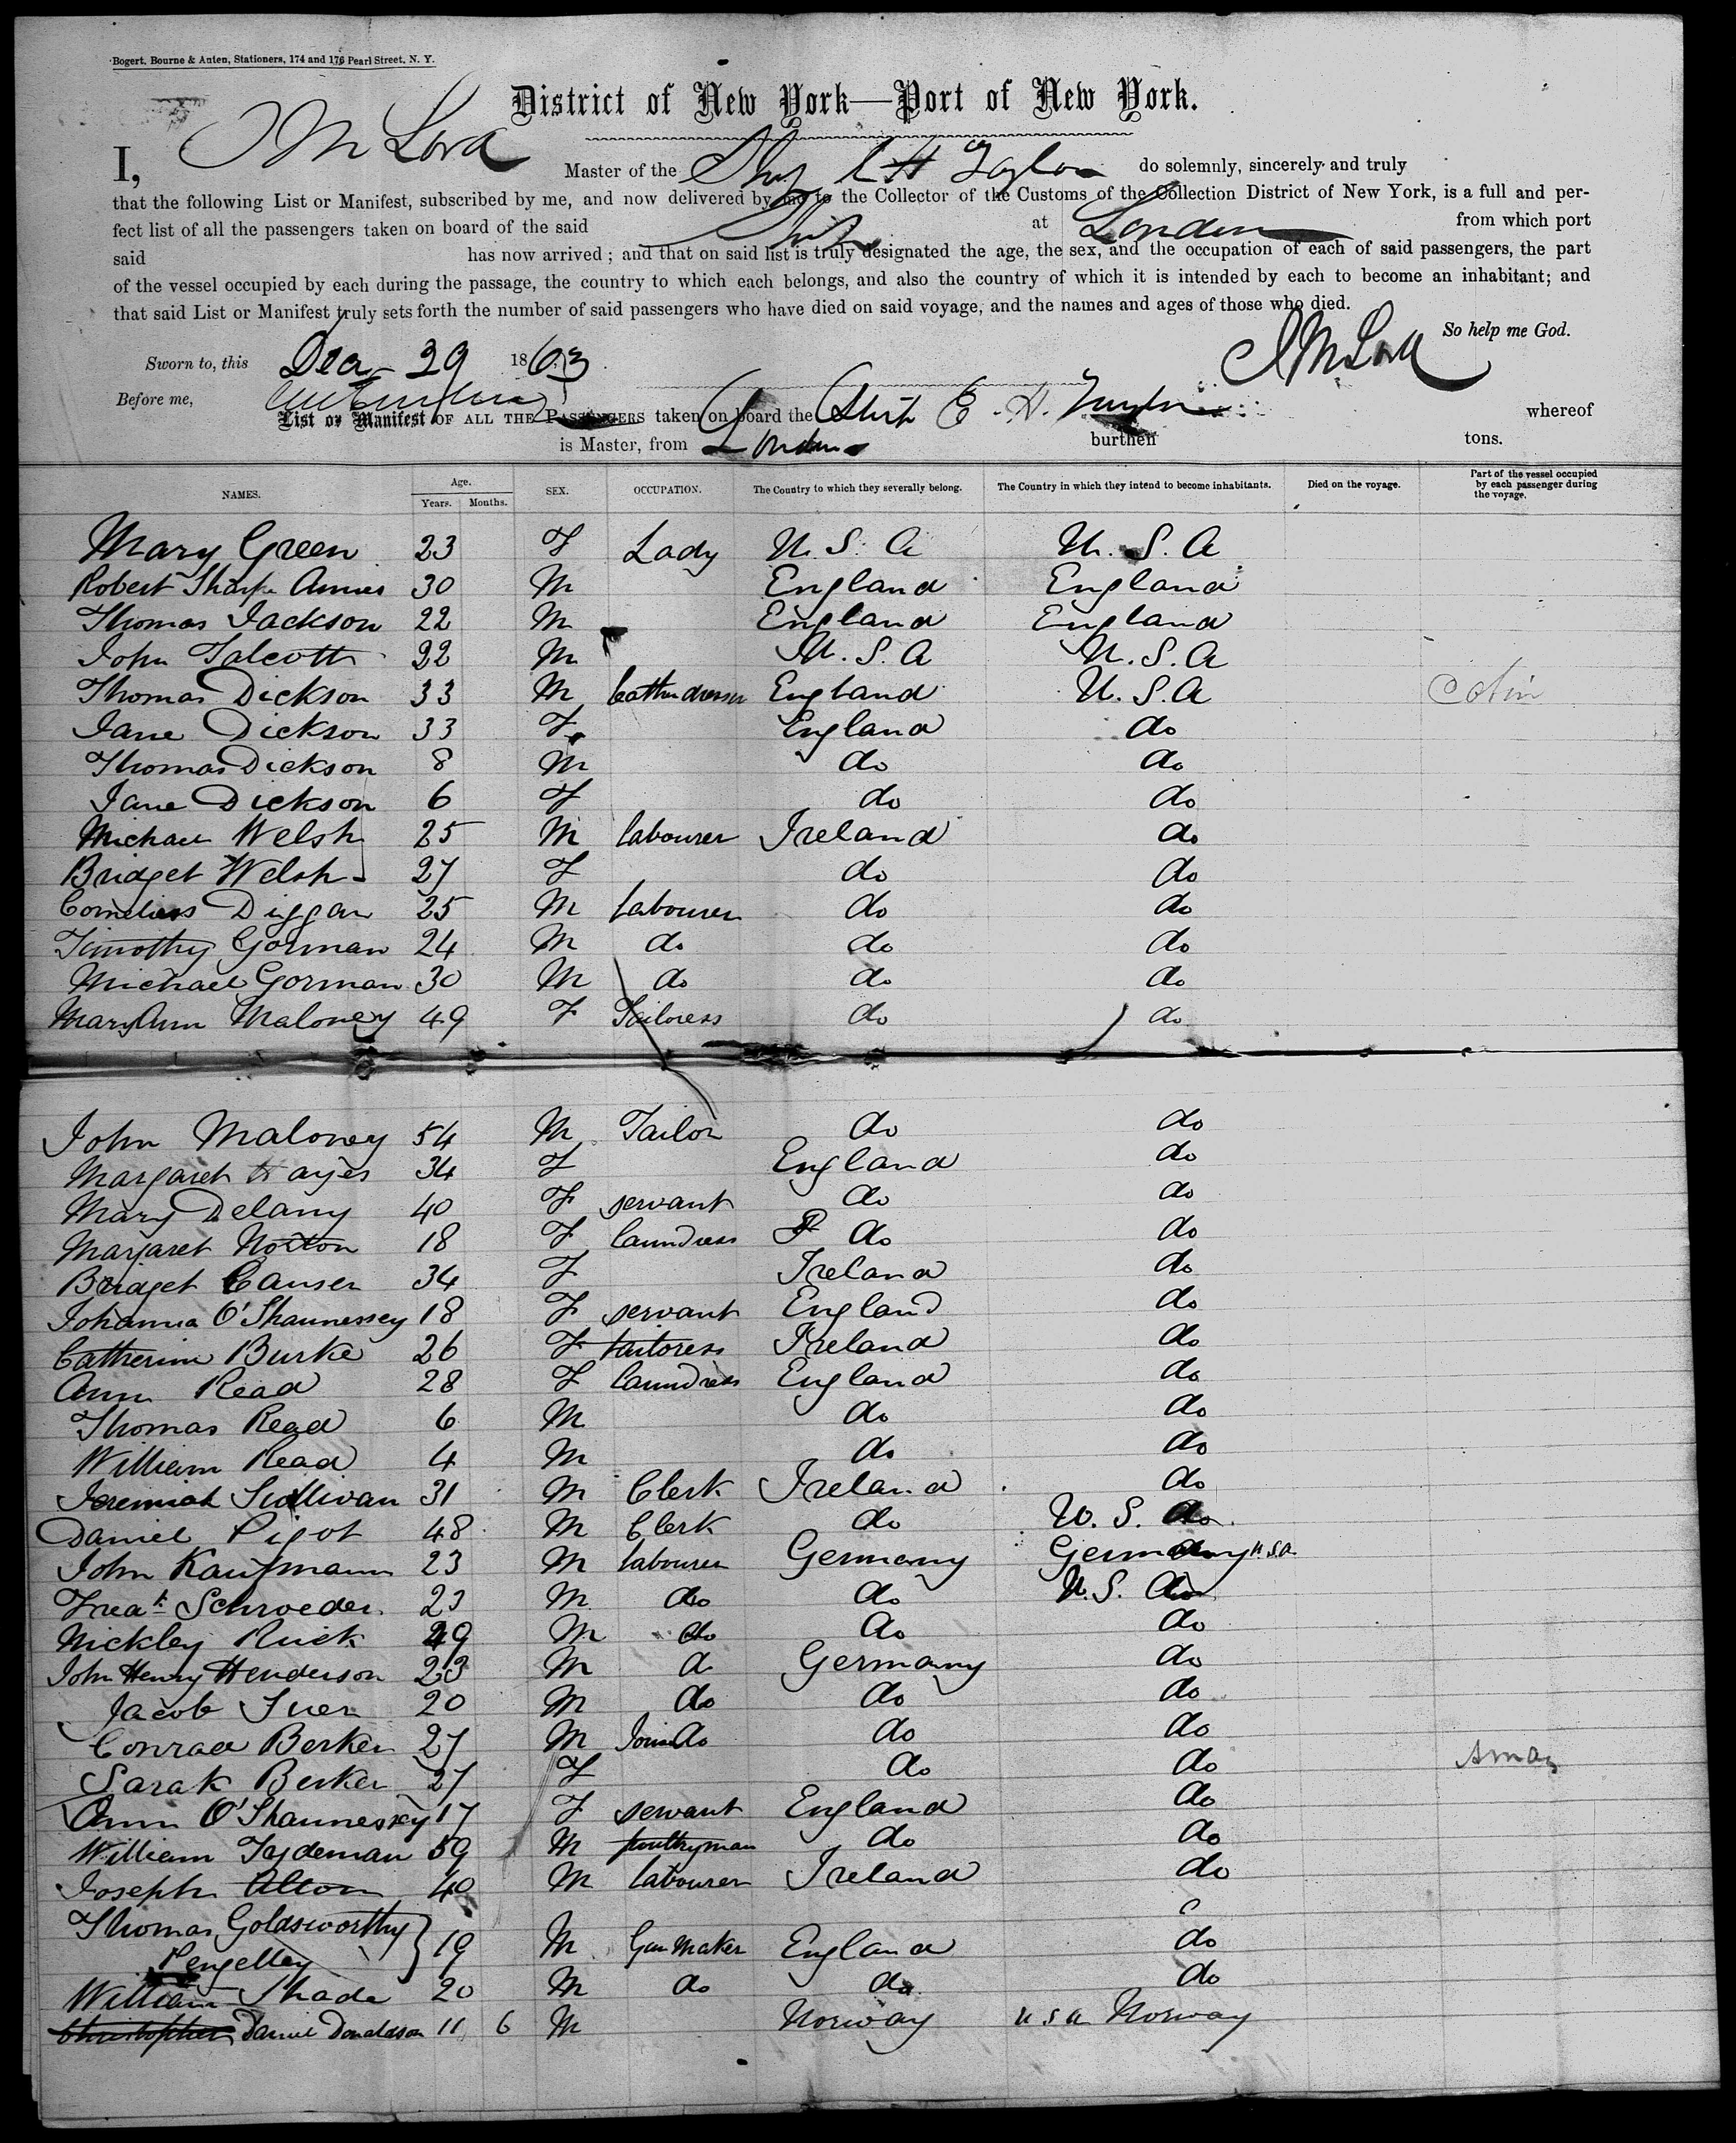 Bogert, Bourne & Auten, Stationers, 174 and 176 Pearl Street, N. Y.
District of New York—Port of New York.
I, J M Lord Master of the Ship E H Taylor do solemnly, sincerely and truly
that the following List or Manifest, subscribed by me, and now delivered by me to the Collector of the Customs of the Collection District of New York, is a full and per-
fect list of all the passengers taken on board of the said Ship at London from which port
said has now arrived; and that on said list is truly designated the age, the sex, and the occupation of each of said passengers, the part
of the vessel occupied by each during the passage, the country to which each belongs, and also the country of which it is intended by each to become an inhabitant; and
that said List or Manifest truly sets forth the number of said passengers who have died on said voyage, and the names and ages of those who died.
So help me God.
Sworn to, this Dec 29 1863 J M Lord
Before me,
List or Manifest OF ALL THE PASSENGERS taken on board the Ship E. H. Taylor whereof
is Master, from London burthen tons.
NAMES. Age. Years. Months. SEX. OCCUPATION. The Country to which they severally belong. The Country in which they intend to become inhabitants. Died on the voyage. Part of the vessel occupied by each passenger during the voyage.
Mary Green 23 F Lady U. S. A U. S. A
Robert Sharpe Annes 30 M England England
Thomas Jackson 22 M England England
John Talcott 22 M U. S. A U. S. A
Thomas Dickson 33 M Leather dresser England U. S. A
Jane Dickson 33 F England do
Thomas Dickson 8 M do do
Jane Dickson 6 F do do
Michael Welsh 25 M labourer Ireland do
Bridget Welsh 27 F do do
Cornelius Diggan 25 M labourer do do
Timothy Gorman 24 M do do do
Michael Gorman 30 M do do do
Mary Ann Maloney 49 F Tailoress do do
John Maloney 54 M Tailor do do
Margaret Hayes 34 F England do
Mary Delany 40 F servant do do
Margaret Norton 18 F laundress do do
Bridget Causer 34 F Ireland do
Johanna O'Shaunessey 18 F servant England do
Catherine Burke 26 F tailoress Ireland do
Ann Read 28 F laundress England do
Thomas Read 6 M do do
William Read 4 M do do
Jeremiah Sullivan 31 M Clerk Ireland do
Daniel Pigot 48 M Clerk do U. S. do
John Kaufmann 23 M labourer Germany Germany U.S.A.
Fredk Schroeder 23 M do do U. S. do
Nickley Ruck 29 M do do do
John Henry Henderson 23 M do Germany do
Jacob Suer 20 M do do do
Conrad Berker 27 M do do do
Sarah Berker 27 F do do
Ann O'Shaunessey 17 F servant England do
William Tydeman 59 M poultryman do do
Joseph Alton 40 M labourer Ireland do
Thomas Goldsworthy
Pengelley } 19 M Gun Maker England do
William Shade 20 M do do do
Christopher Daniel Donaldson 11 6 M Norway U S A Norway